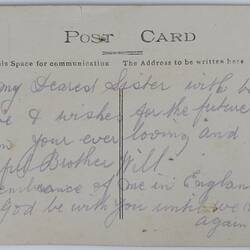 POST CARD
This Space for communication The Address to be written here
my Dearest Sister with b
& wishes for the future
your ever loving and
Brother Will.
of me in England
God be with you
again